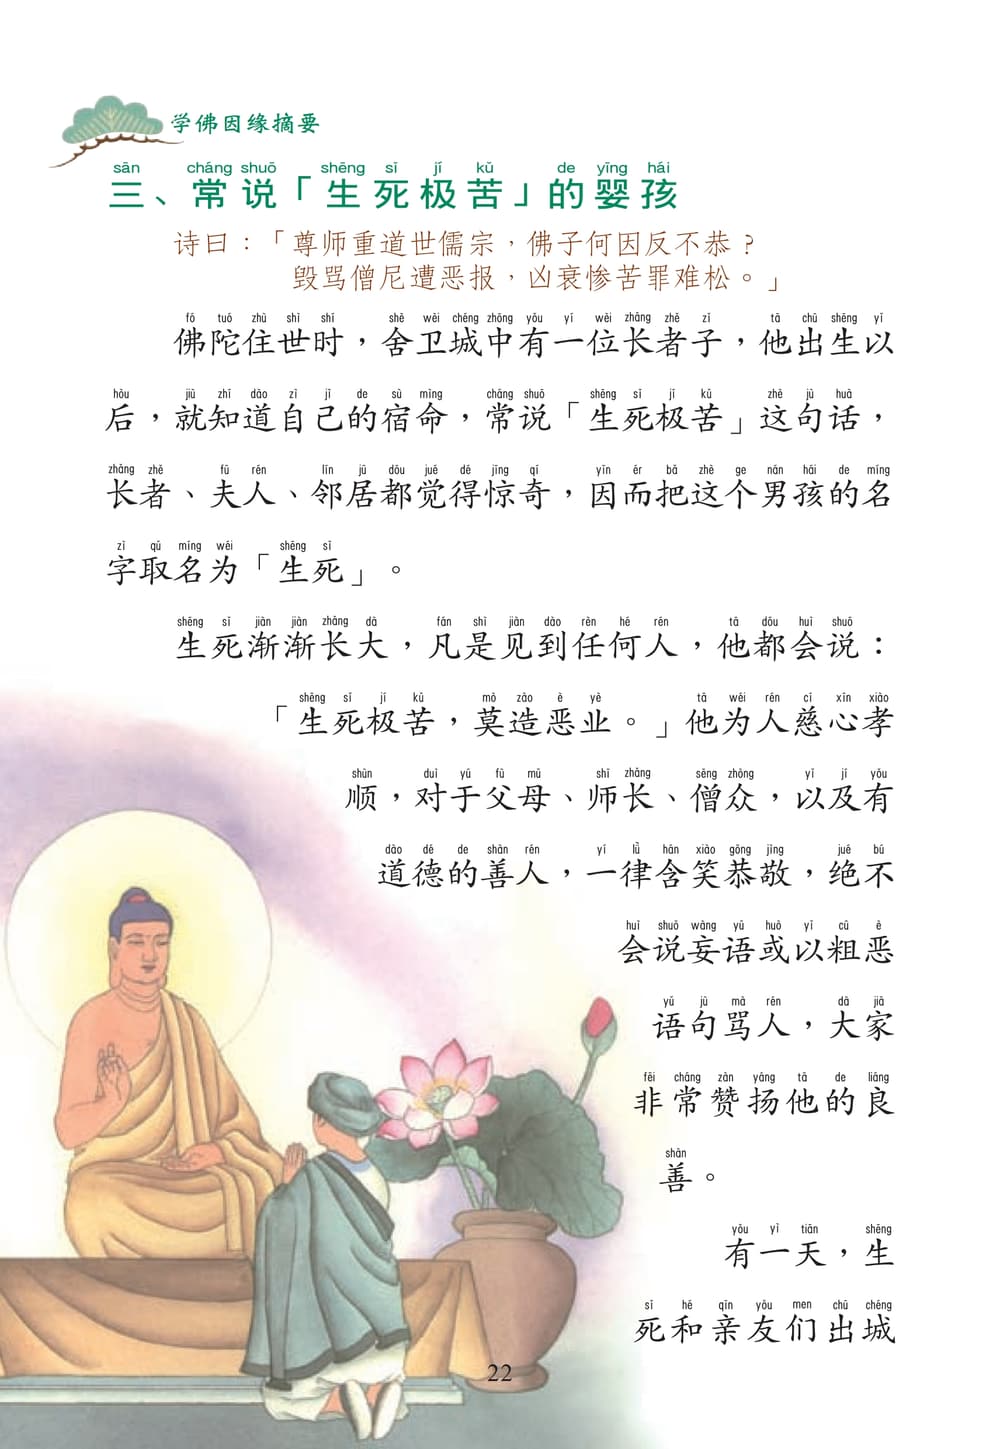 学佛因缘摘要
sān cháng shuō shēng sǐ jí kǔ de yīng hái
三、常说「生死极苦」的婴孩
诗曰：「尊师重道世儒宗，佛子何因反不恭？
毁骂僧尼遭恶报，凶衰惨苦罪难松。」
fó tuó zhù shì shí shè wèi chéng zhōng yǒu yí wèi zhǎng zhě zǐ tā chū shēng yǐ
佛陀住世时，舍卫城中有一位长者子，他出生以
hòu jiù zhī dào zì jǐ de sù mìng cháng shuō shēng sǐ jí kǔ zhè jù huà
后，就知道自己的宿命，常说「生死极苦」这句话，
zhǎng zhě fū rén lín jū dōu jué dé jīng qí yīn ér bǎ zhè ge nán hái de míng
长者、夫人、邻居都觉得惊奇，因而把这个男孩的名
zì qǔ míng wéi shēng sǐ
字取名为「生死」。
shēng sǐ jiàn jiàn zhǎng dà fán shì jiàn dào rèn hé rén tā dōu huì shuō
生死渐渐长大，凡是见到任何人，他都会说：
shēng sǐ jí kǔ mò zào è yè tā wéi rén cí xīn xiào
「生死极苦，莫造恶业。」他为人慈心孝
shùn duì yú fù mǔ shī zhǎng sēng zhòng yǐ jí yǒu
顺，对于父母、师长、僧众，以及有
dào dé de shàn rén yí lǜ hán xiào gōng jìng jué bù
道德的善人，一律含笑恭敬，绝不
huì shuō wàng yǔ huò yǐ cū è
会说妄语或以粗恶
yǔ jù mà rén dà jiā
语句骂人，大家
fēi cháng zàn yáng tā de liáng
非常赞扬他的良
shàn
善。
yǒu yì tiān shēng
有一天，生
sǐ hé qīn yǒu men chū chéng
死和亲友们出城
22